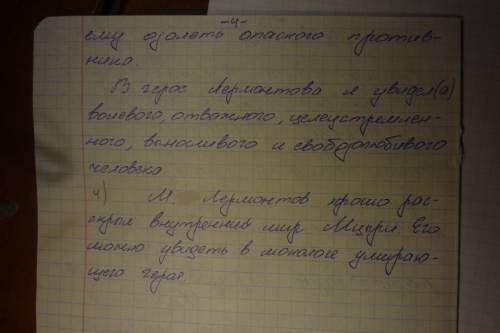 -4-
ему одолеть опасного против-
ника.
В герое Лермонтова я увидел(а)
волевого, отважного, целеустремлен-
ного, выносливого и свободолюбивого
человека
4) М. Лермонтов хорошо рас-
скрыл внутренний мир Мцыри Его
можно увидеть в монологе умираю-
щего героя.